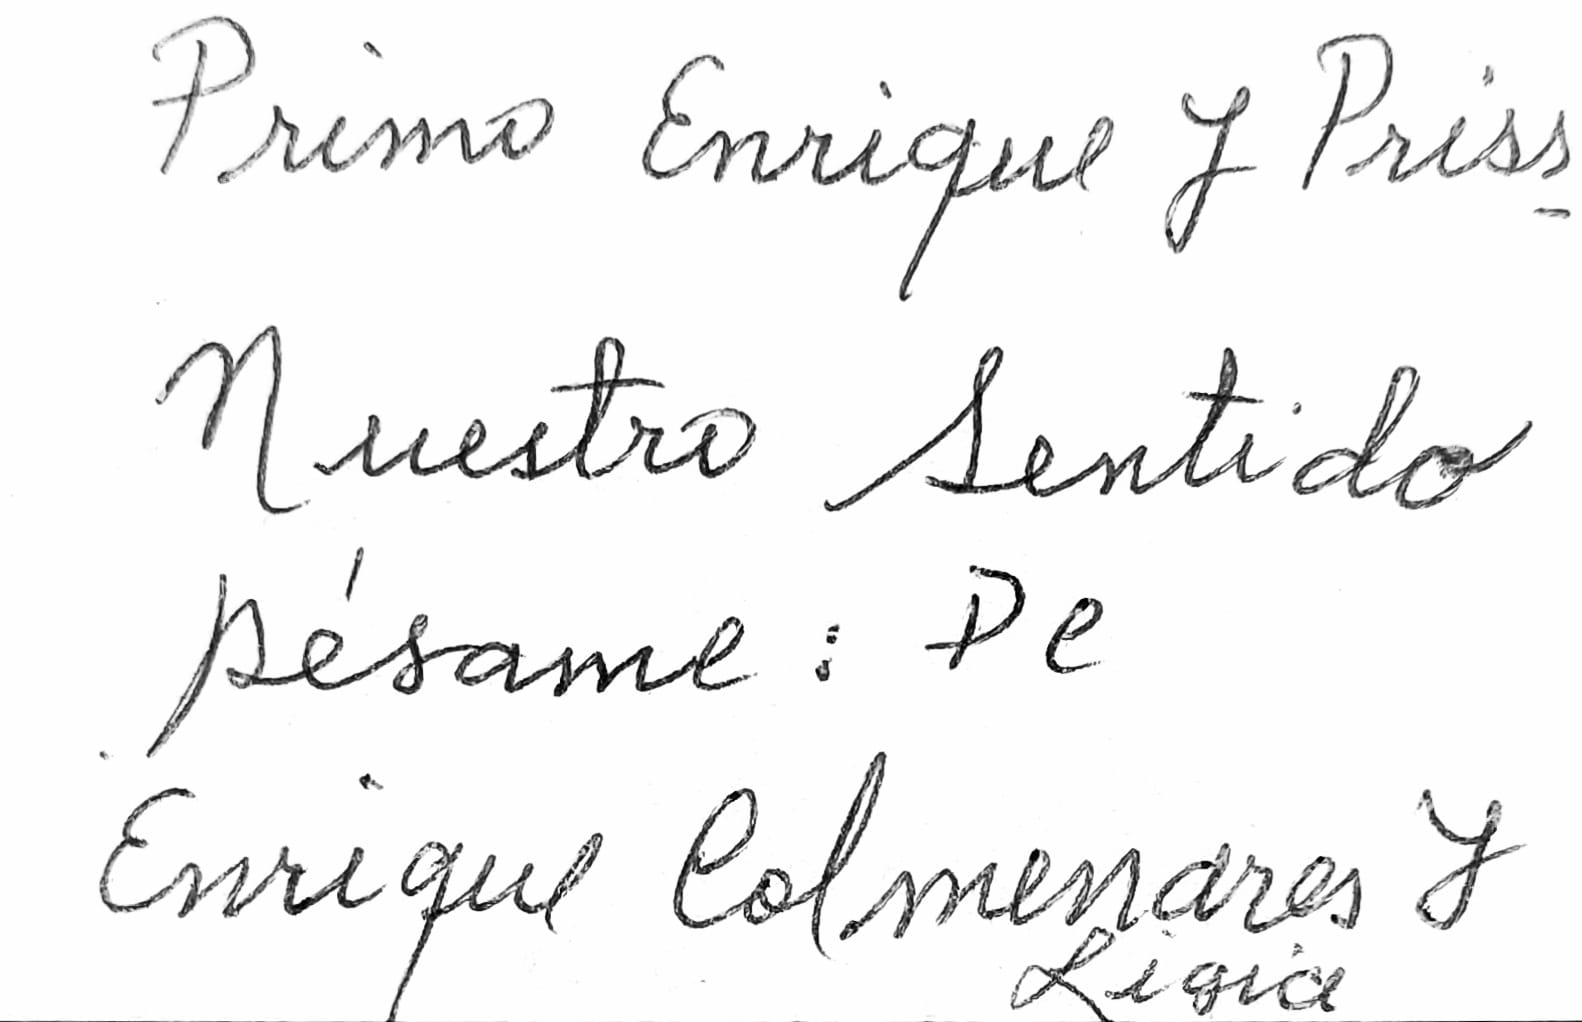 Primo Enrique y Priss
Nuestro Sentido
pésame : De
Enrique Colmenares y
Ligia